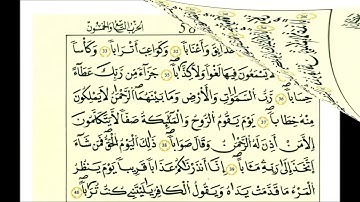 الحزب التاسع والخمسون
حدائق وأعنابا 32 وكواعب أترابا 33 وكأسا
لا يسمعون فيها لغوا ولا كذابا 35 جزاء من ربك عطاء
حسابا 36 رب السموات والأرض وما بينهما الرحمن لا يملكون
منه خطابا 37 يوم يقوم الروح والملئكة صفا لا يتكلمون
إلا من أذن له الرحمن وقال صوابا 38 ذلك اليوم الحق فمن شاء
اتخذ إلى ربه مئابا 39 إنا أنذرنكم عذابا قريبا يوم ينظر
المرء ما قدمت يداه ويقول الكافر يليتني كنت ترابا 40